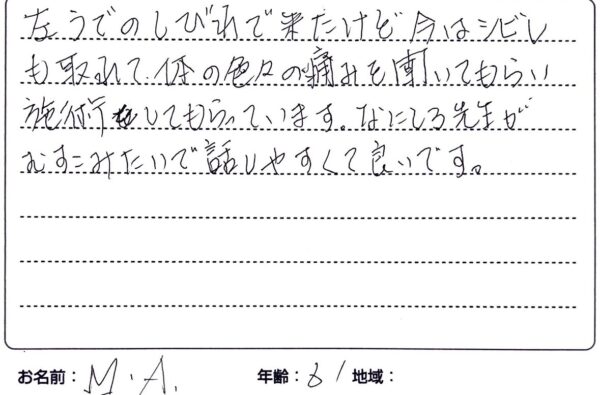 左うでのしびれで来たけど今はシビレ
も取れて、体の色々の痛みを聞いてもらい
施術をしてもらっています。なにしろ先生が
むすこみたいで話しやすくて良いです。
お名前：M.A. 年齢：81 地域：